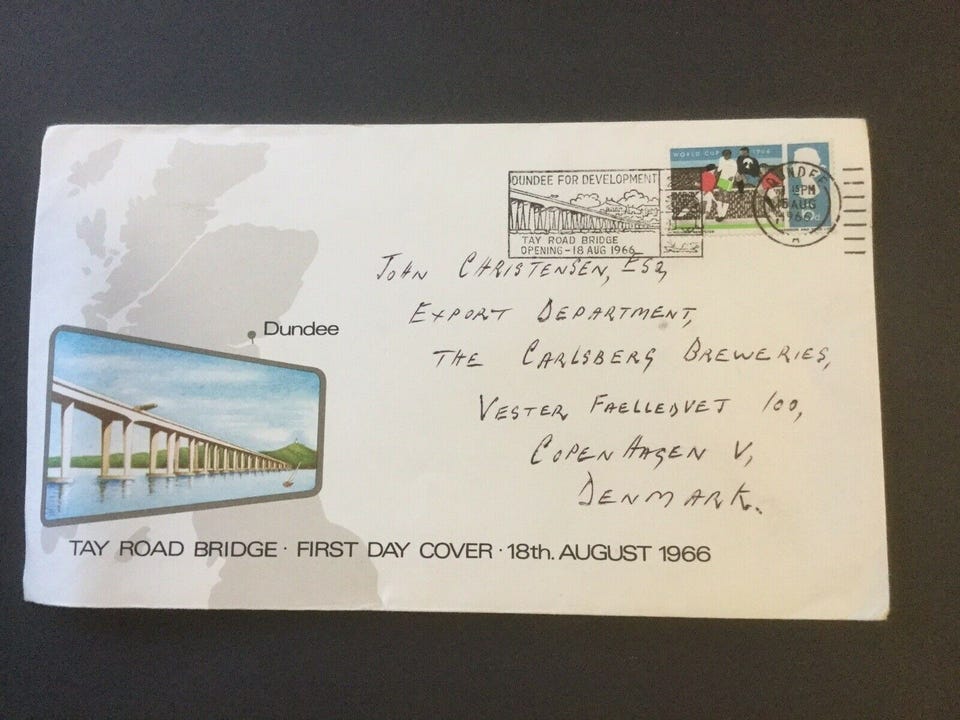 WORLD CUP 1966
DUNDEE FOR DEVELOPMENT
TAY ROAD BRIDGE
OPENING - 18 AUG 1966
DUNDEE
15PM
AUG
1966
A
JOHN CHRISTENSEN, ESQ,
EXPORT DEPARTMENT,
THE CARLSBERG BREWERIES,
VESTER FAELLEDVEJ 100,
COPENHAGEN V,
DENMARK.
Dundee
TAY ROAD BRIDGE · FIRST DAY COVER · 18th. AUGUST 1966